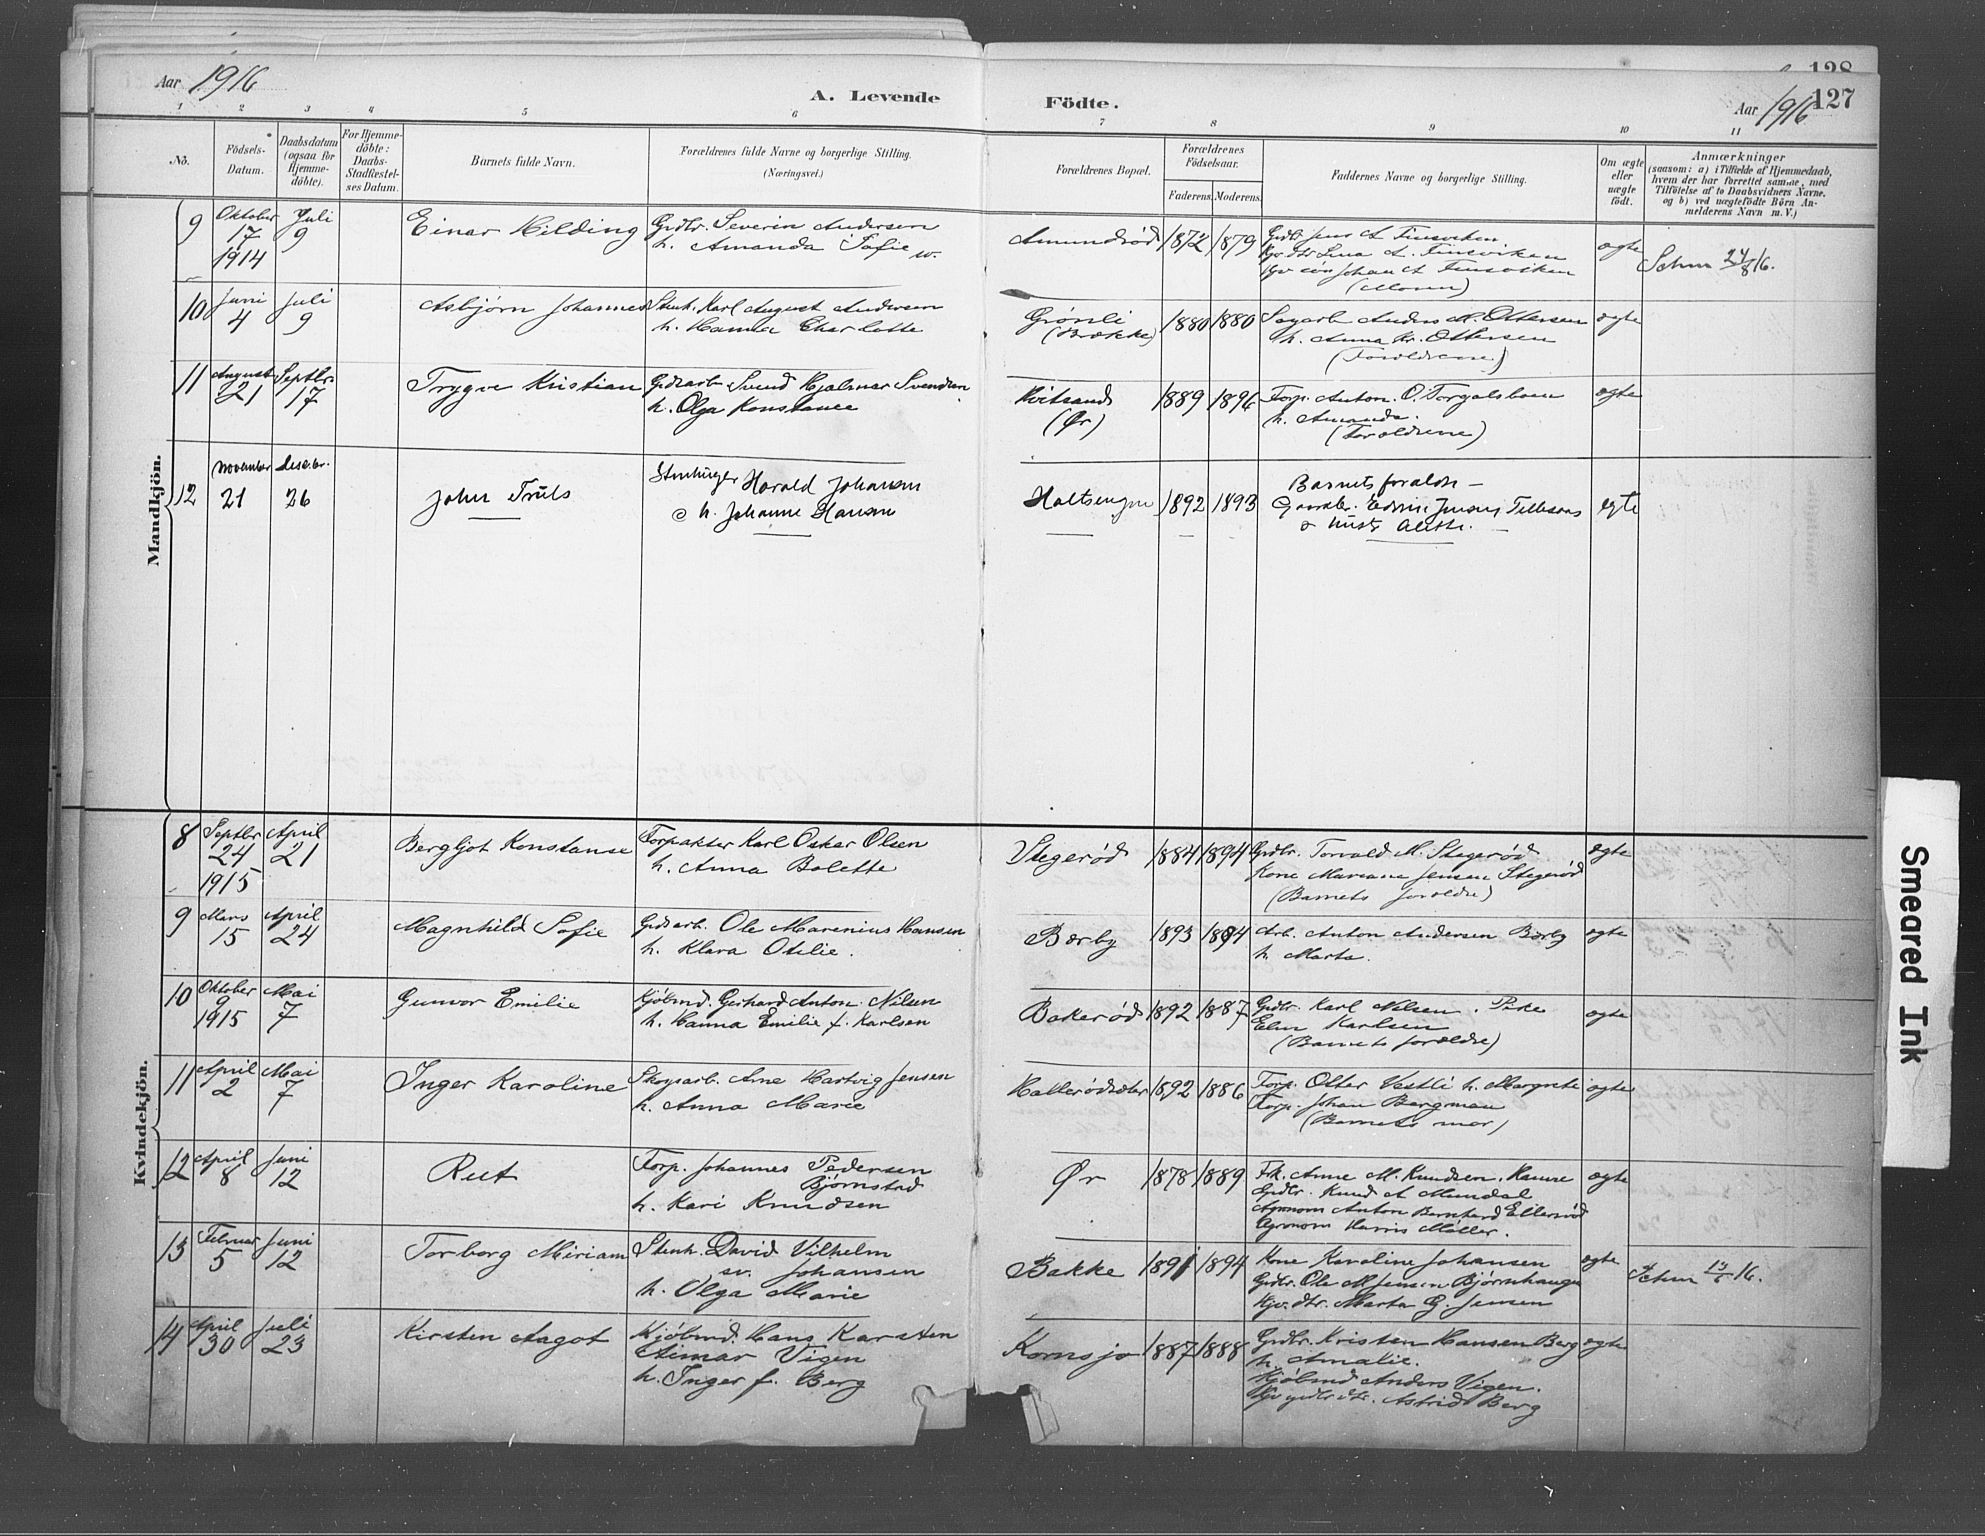 Aar 1916
A. Levende Födte.
Aar 1916
128
127
1 2 3 4 5 6 7 8 9 10 11
No.
Födsels-Datum.
Daabsdatum (ogsaa for Hjemme-döbte).
For Hjemme-döbte: Daabs-Stadfæstel-ses Datum.
Barnets fulde Navn.
Forældrenes fulde Navne og borgerlige Stilling. (Næringsvei.)
Forældrenes Bopæl.
Forældrenes Födselsaar.
Faderens. Moderens.
Faddernes Navne og borgerlige Stilling.
Om ægte eller uægte födt.
Anmærkninger
(saasom: a) i Tilfælde af Hjemmedaab,
hvem der har forrettet samme, med
Tilföielse af to Daabsvidners Navne,
og b) ved uægtefödte Börn An-
melderens Navn m. V.)
Mandkjön.
9 Oktober 17 1914 Juli 9 Einar Hilding
Grdbr. Severin Andersen
h. Amanda Sofie sv.
Amundrød 1872 1879
Grdbr Jens A Finsviken
Gv. dtr Lina A. Finsviken
Gv søn Johan A Finsviken
(Moren)
ægte
24/8 16.
10 Juni 4 Juli 9 Asbjørn Johannes
Stenh. Karl August Andersen
h. Hanna Charlotte
Grønli (Brække) 1880 1880
Sagarb Anders M. Ottersen
h. Anna Kr. Ottersen
(Forældrene)
ægte
11 August 21 Septbr. 17 Trygve Kristian
Grdsarb. Svend Hjalmar Svendsen
h. Olga Konstance
Hvitsand (Ør) 1889 1896
Torp. Anton. O. Torgalsboen
h. Amanda.
(Forældrene)
ægte
12 November 21 desebr. 26 John Truls
Stenhugger Harald Johansen
o h. Johanne Hansen
1892 1893
Barnets foraldre –
Gaardbr. Edvin Jensen
o hustr.
egte
Kvindekjön.
8 Septbr 24 1915 April 21 Bergljot Konstanse
Forpakter Karl Oskar Olsen
h. Anna Bolette
Stegerød 1884 1894
Grdbr. Torvald M. Stegerød
Kone Mariane Jensen Stegerød
(Barnets forældre)
ægte
9 Mars 15 April 24 Magnhild Sofie
Grdsarb. Ole Marenius Hansen
h. Klara Otilie.
Bærby 1893 1894
Arb. Anton Andersen Bærby
h. Marta.
ægte
10 Oktober 9 1915 Mai 7 Gunvor Emilie
Kjöbmd. Gerhard Anton Nilsen
h. Hanna Emilie f. Karlsen
Bakerød 1892 1887
Grdbr. Karl Nilsen. Pike
Elen Karlsen
(Barnets forældre)
ægte
11 April 2 Mai 7 Inger Karoline
Skogsarb. Arne Hartvig Jensen
h. Anna Marie
1892 1886
Torp. Otter Vestli h. Margrete
Torp. Johan Bergman
(Barnets mor)
ægte
12 April 8 Juni 12 Rut
Torp. Johannes Pedersen
Bjørnstad
h. Kari Knudsen
Ør 1878 1889
Frk. Anne M. Knudsen,
Grdbr. Knud A Mundal
Agronom Anton Bernhard Ellerød
Agronom Harris Møller.
ægte
13 Februar 5 Juni 12 Torborg Miriam
Stenh. David Vilhelm
sv. Johansen
h. Olga Marie
Bakke 1891 1894
Kone Karoline Johansen
Grdbr. Ole M Jensen Bjørnhaugen
Gv. dtr. Marta G. Jensen
ægte
13/6 16.
14 April 30 Juli 23 Kirsten Aagot
Kjöbmd. Hans Karsten
Aimar Vigen
h. Inger f. Berg
Kornsjø 1887 1888
Grdbr. Kristen Hansen Berg
h. Amalie.
Kjöbmd Anders Vigen.
Gv grdbr dtr. Astrid Berg
ægte
Smeared Ink